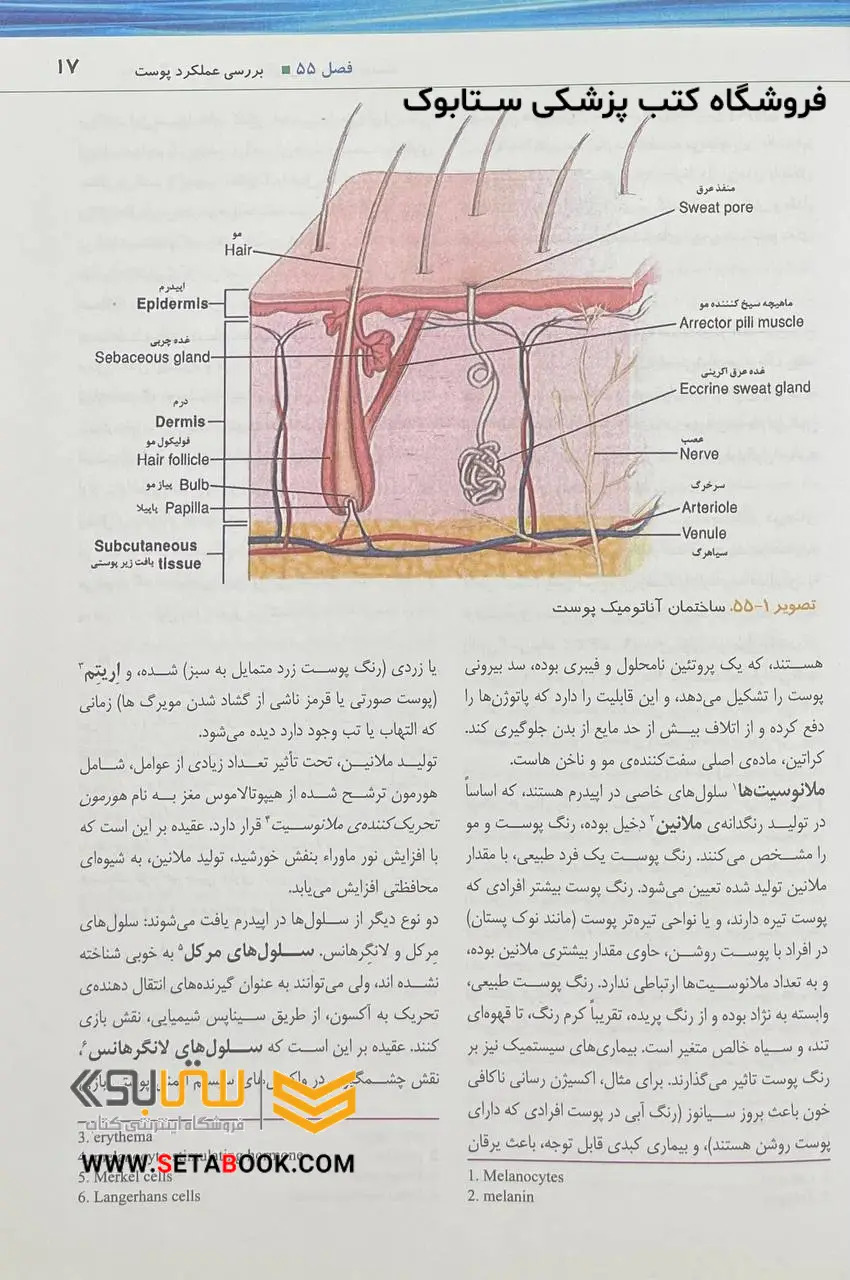 فصل ۵۵ ■ بررسی عملکرد پوست ۱۷
فروشگاه کتب پزشکی ستابوک
منفذ عرق
Sweat pore
مو
Hair
اپیدرم
Epidermis
ماهیچه سیخ کننده مو
Arrector pili muscle
غده چربی
Sebaceous gland
غده عرق اکرینی
Eccrine sweat gland
درم
Dermis
فولیکول مو
Hair follicle
عصب
Nerve
پیاز مو Bulb
پاپیلا Papilla
سرخرگ
Arteriole
Venule
سیاهرگ
Subcutaneous
بافت زیر پوستی tissue
تصویر ۱-۵۵. ساختمان آناتومیک پوست
هستند، که یک پروتئین نامحلول و فیبری بوده، سد بیرونی
پوست را تشکیل می‌دهد، و این قابلیت را دارد که پاتوژن‌ها را
دفع کرده و از اتلاف بیش از حد مایع از بدن جلوگیری کند.
کراتین، ماده‌ی اصلی سفت‌کننده‌ی مو و ناخن هاست.
ملانوسیت‌ها۱ سلول‌های خاصی در اپیدرم هستند، که اساساً
در تولید رنگدانه‌ی ملانین۲ دخیل بوده، رنگ پوست و مو
را مشخص می‌کنند. رنگ پوست یک فرد طبیعی، با مقدار
ملانین تولید شده تعیین می‌شود. رنگ پوست بیشتر افرادی که
پوست تیره دارند، و یا نواحی تیره‌تر پوست (مانند نوک پستان)
در افراد با پوست روشن، حاوی مقدار بیشتری ملانین بوده،
و به تعداد ملانوسیت‌ها ارتباطی ندارد. رنگ پوست طبیعی،
وابسته به نژاد بوده و از رنگ پریده، تقریباً کرم رنگ، تا قهوه‌ای
تند، و سیاه خالص متغیر است. بیماری‌های سیستمیک نیز بر
رنگ پوست تاثیر می‌گذارند. برای مثال، اکسیژن رسانی ناکافی
خون باعث بروز سیانوز (رنگ آبی در پوست افرادی که دارای
پوست روشن هستند)، و بیماری کبدی قابل توجه، باعث یرقان
1. Melanocytes
2. melanin
یا زردی (رنگ پوست زرد متمایل به سبز) شده، و اِریتم۳
(پوست صورتی یا قرمز ناشی از گشاد شدن مویرگ ها) زمانی
که التهاب یا تب وجود دارد دیده می‌شود.
تولید ملانین، تحت تأثیر تعداد زیادی از عوامل، شامل
هورمون ترشح شده از هیپوتالاموس مغز به نام هورمون
تحریک‌کننده‌ی ملانوسیت۴ قرار دارد. عقیده بر این است که
با افزایش نور ماوراء بنفش خورشید، تولید ملانین، به شیوه‌ای
محافظتی افزایش می‌یابد.
دو نوع دیگر از سلول‌ها در اپیدرم یافت می‌شوند: سلول‌های
مِرکل و لانگِرهانس. سلول‌های مرکل۵ به خوبی شناخته
نشده اند، ولی می‌توانند به عنوان گیرنده‌های انتقال دهنده‌ی
تحریک به آکسون، از طریق سیناپس شیمیایی، نقش بازی
کنند. عقیده بر این است که سلول‌های لانگرهانس۶،
نقش چشمگیری در واکنش‌های سیستم ایمنی پوستی بازی
ستابوک
فروشگاه اینترنتی کتاب
3. erythema
4. melanocyte-stimulating hormone
WWW.SETABOOK.COM
5. Merkel cells
6. Langerhans cells